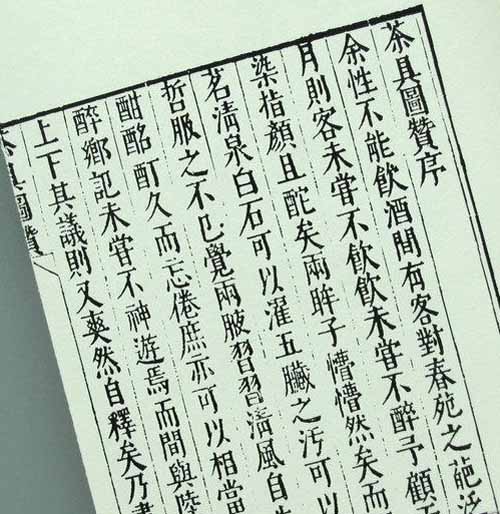 茶具圖贊序
余性不能飲酒間有客對春苑之葩泛
月則客未嘗不飲飲未嘗不醉予顧
染指顏且酡矣兩眸子懵懵然矣而
茗清泉白石可以濯五臟之污可以
哲服之不已覺兩腋習習清風自
酣酩酊久而忘倦庶亦可以相當
醉鄉記未嘗不神遊焉而間與陸
上下其議則又爽然自釋矣乃書
茶具圖贊